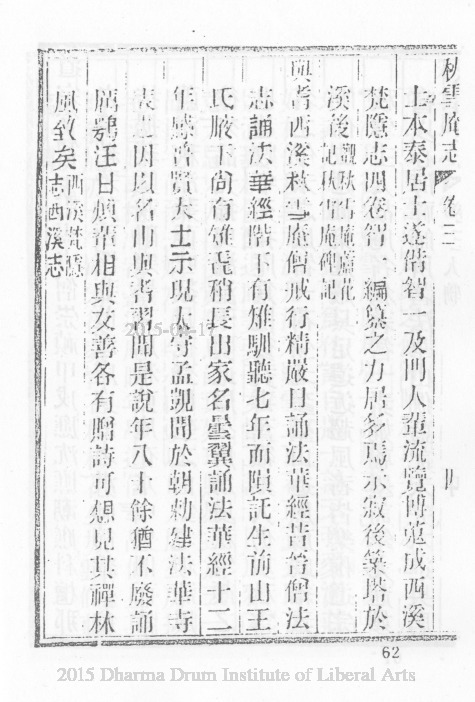 秋雪庵志 卷三 四
土本泰居士遂偕智一及門人輩流覽博蒐成西溪
梵隱志四卷智一編纂之力居多焉示寂後築塔於
溪後觀秋雪庵蘆花記秋雪庵碑記
興耆西溪秋雪庵僧戒行精嚴日誦法華經昔答僧法
志誦法華經階下有雉馴聽七年而隕託生前山王
氏腋下尚有雉毳稍長出家名曇翼誦法華經十二
年感普賢大士示現太守孟覬聞於朝勅建法華寺
表之因以名山興耆習聞是說年八十餘猶不廢誦
厲鶚汪日煩輩相與友善各有贈詩可想見其禪林
風致矣西溪梵隱志西溪志
62
2015 Dharma Drum Institute of Liberal Arts